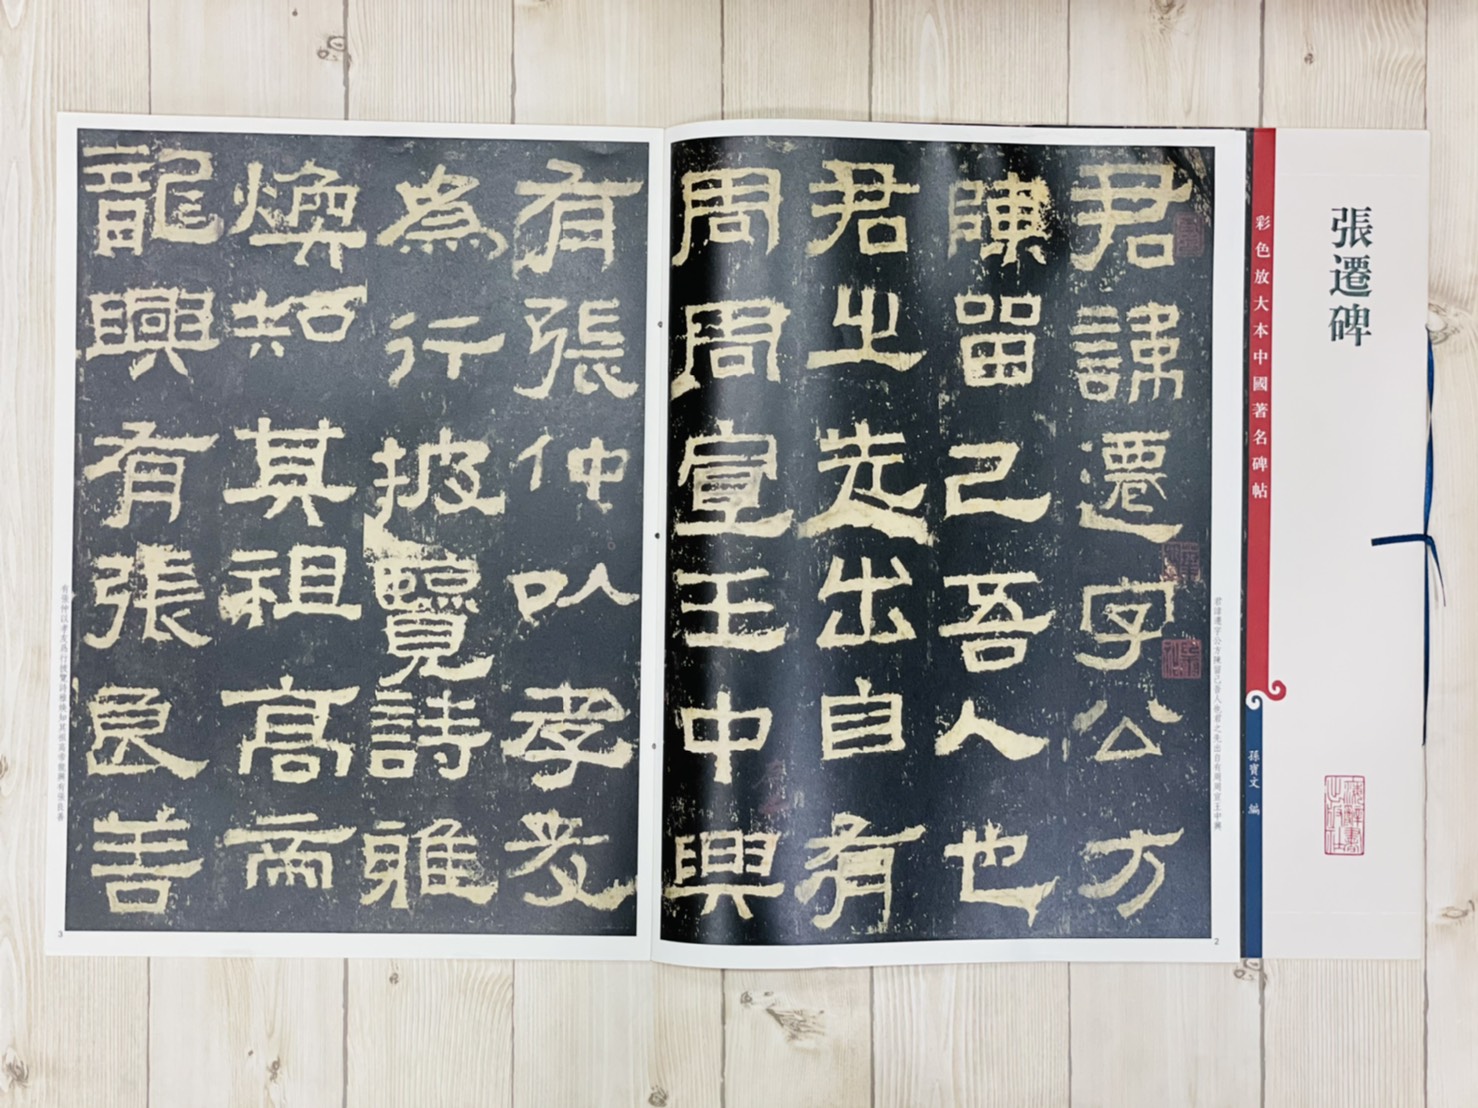 張遷碑
彩色放大本中國著名碑帖
孫寶文 編
君諱遷字公方
陳留己吾人也
君之先出自有
周周宣王中興
君諱遷字公方陳留己吾人也君之先出自有周周宣王中興
2
有張仲以孝友
為行披覽詩雅
煥知其祖高帝
龍興有張良善
有張仲以孝友爲行披覽詩雅煥知其祖高帝龍興有張良善
3